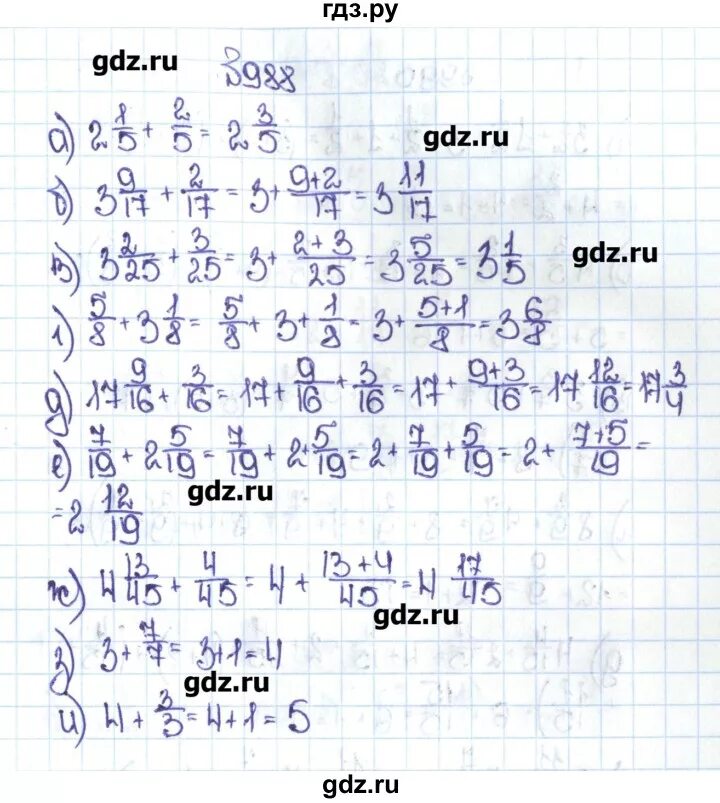 гдз.ру
gdz.ru
№988
а) 2 1/5 + 2/5 = 2 3/5
gdz.ru
б) 3 9/17 + 2/17 = 3 + (9+2)/17 = 3 11/17
в) 3 2/25 + 3/25 = 3 + (2+3)/25 = 3 5/25 = 3 1/5
gdz.ru
г) 5/8 + 3 1/8 = 5/8 + 3 + 1/8 = 3 + (5+1)/8 = 3 6/8
д) 17 9/16 + 3/16 = 17 + 9/16 + 3/16 = 17 + (9+3)/16 = 17 12/16 = 17 3/4
е) 7/19 + 2 5/19 = 7/19 + 2 + 5/19 = 2 + 7/19 + 5/19 = 2 + (7+5)/19 =
gdz.ru
= 2 12/19
ж) 4 13/45 + 4/45 = 4 + (13+4)/45 = 4 17/45
gdz.ru
з) 3 + 7/7 = 3+1 = 4
gdz.ru
и) 4 + 3/3 = 4+1 = 5
gdz.ru